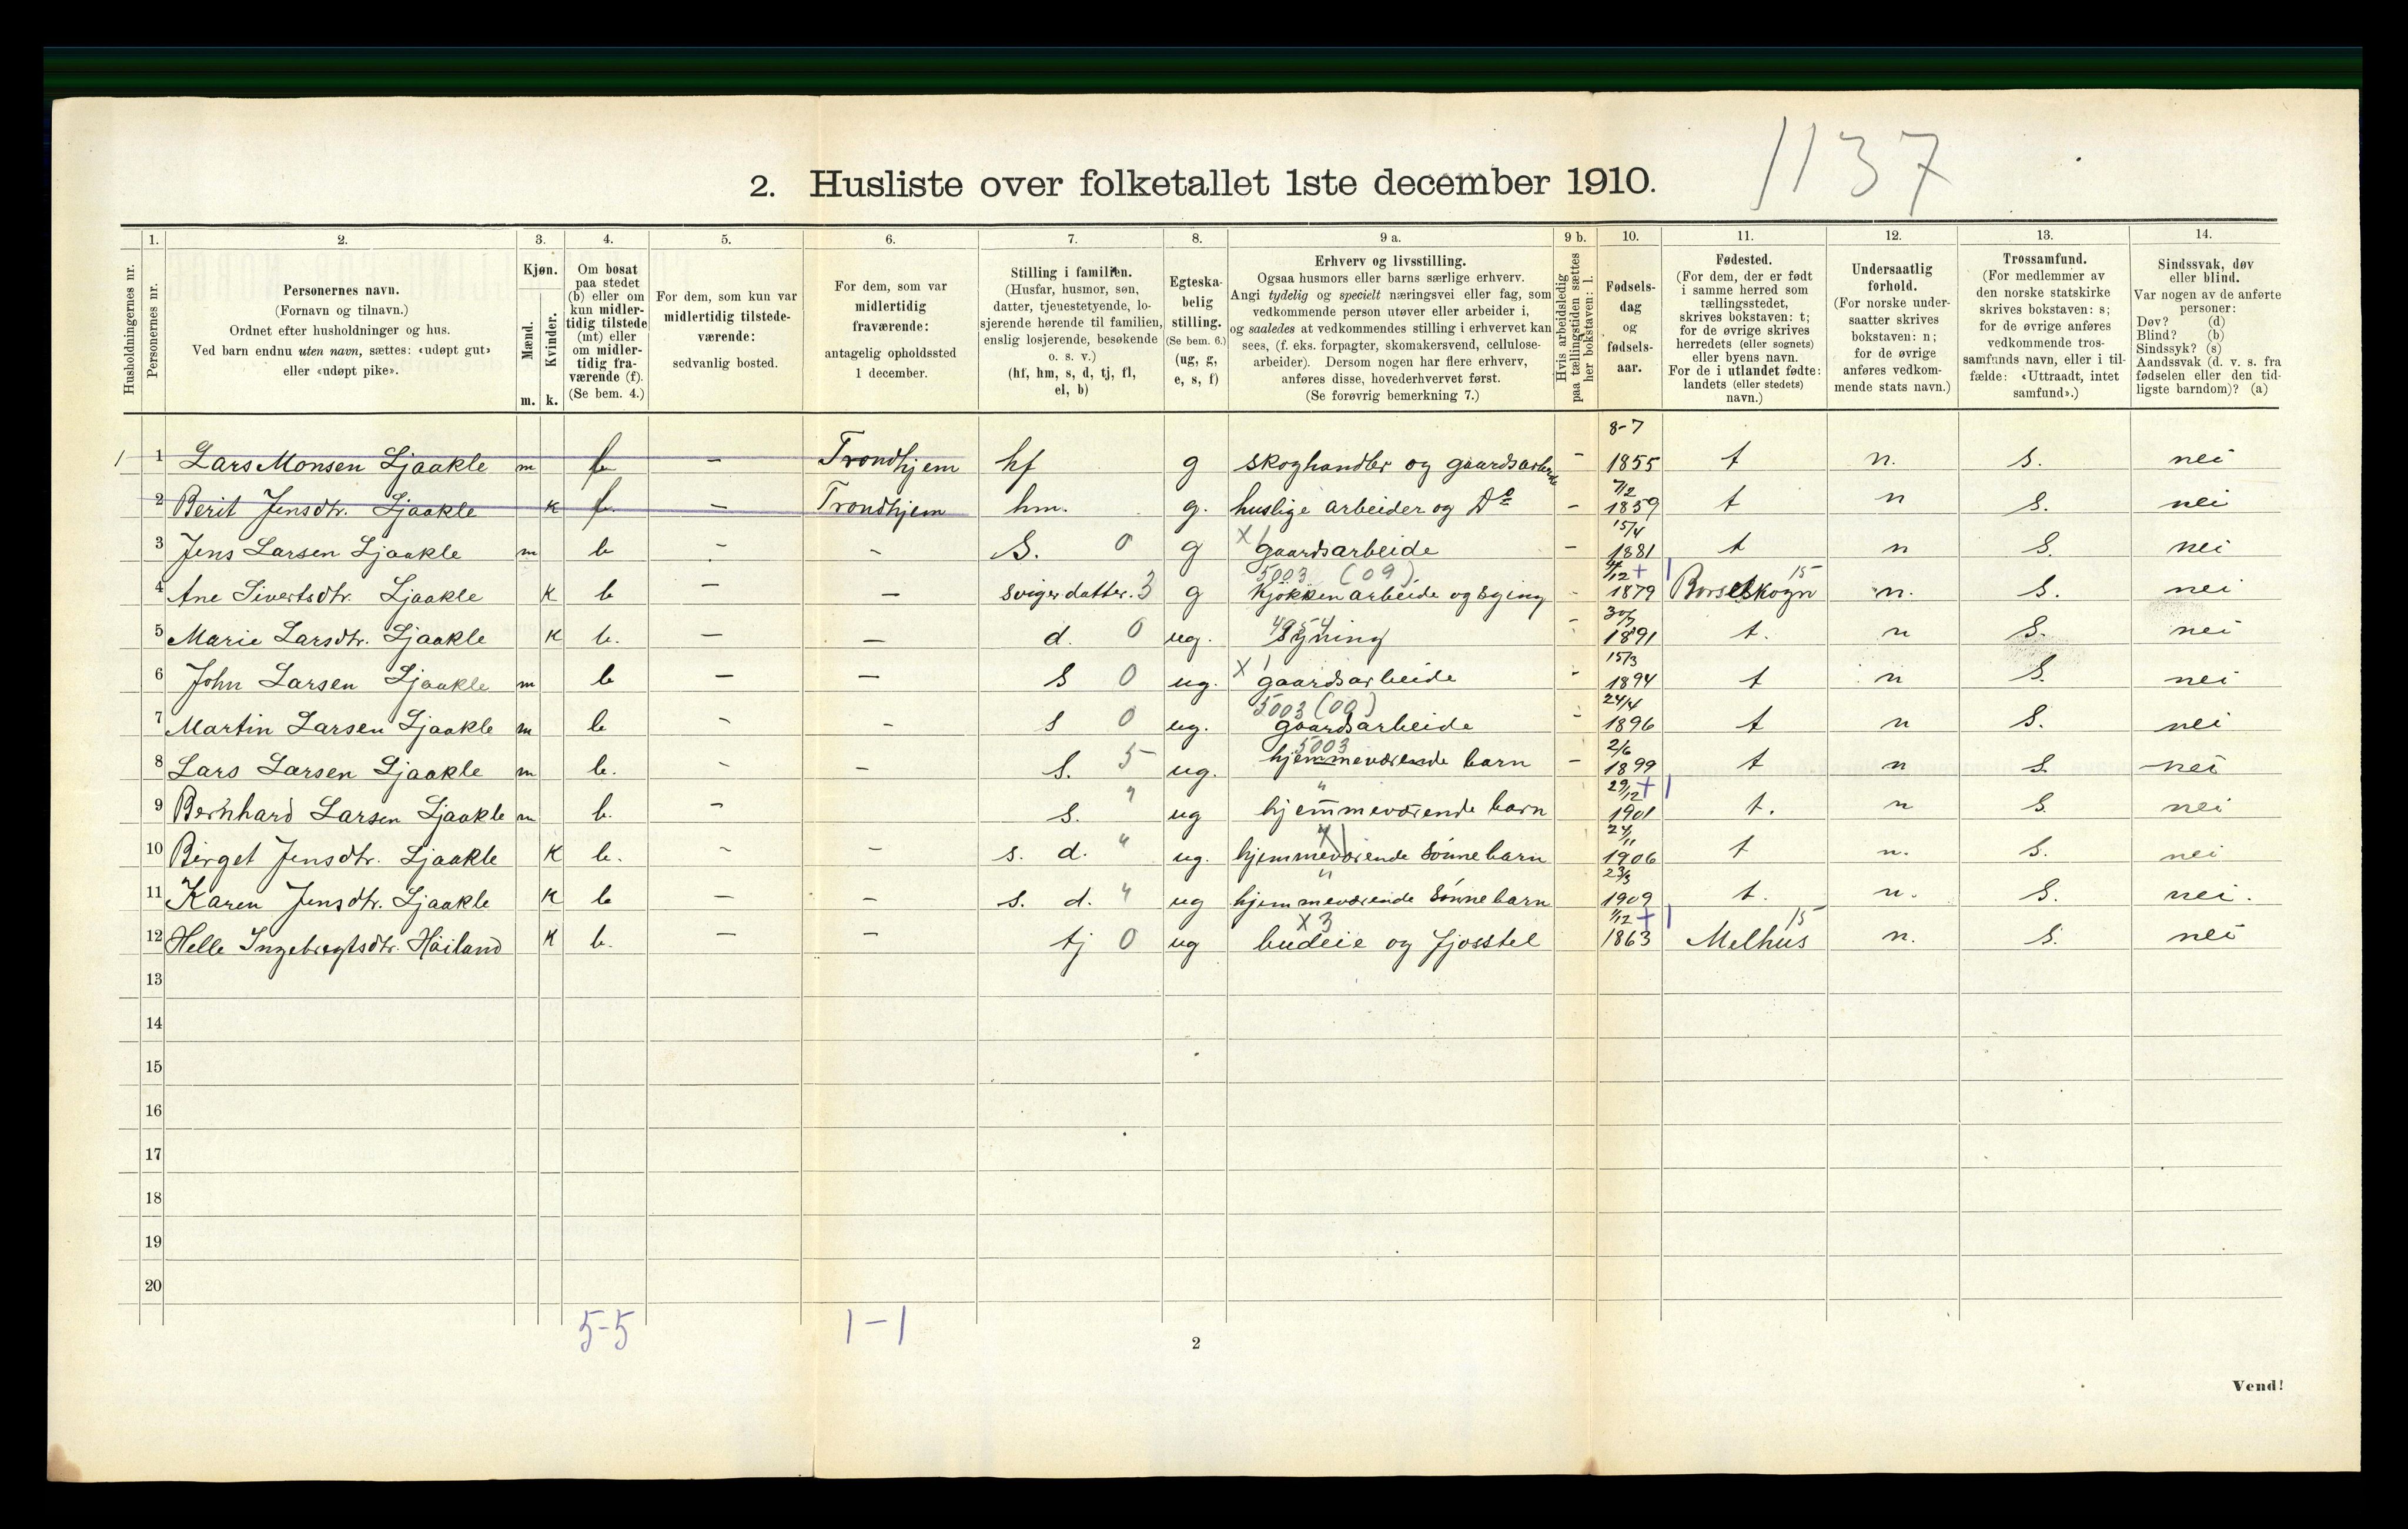 1137
2. Husliste over folketallet 1ste december 1910.
Husholdningernes nr.
1. Personernes nr.
2. Personernes navn.
(Fornavn og tilnavn.)
Ordnet efter husholdninger og hus.
Ved barn endnu uten navn, sættes: «udøpt gut»
eller «udøpt pike».
3. Kjøn.
Mænd. Kvinder.
m. k.
4. Om bosat
paa stedet
(b) eller om
kun midler-
tidig tilstede
(mt) eller
om midler-
tidig fra-
værende (f).
(Se bem. 4.)
5. For dem, som kun var
midlertidig tilstede-
værende:
sedvanlig bosted.
6. For dem, som var
midlertidig
fraværende:
antagelig opholdssted
1 december.
7. Stilling i familien.
(Husfar, husmor, søn,
datter, tjenestetyende, lo-
sjerende hørende til familien,
enslig losjerende, besøkende
o. s. v.)
(hf, hm, s, d, tj, fl,
el, b)
8. Egteska-
belig
stilling.
(Se bem. 6.)
(ug, g,
e, s, f)
9 a. Erhverv og livsstilling.
Ogsaa husmors eller barns særlige erhverv.
Angi tydelig og specielt næringsvei eller fag, som
vedkommende person utøver eller arbeider i,
og saaledes at vedkommendes stilling i erhvervet kan
sees, (f. eks. forpagter, skomakersvend, cellulose-
arbeider). Dersom nogen har flere erhverv,
anføres disse, hovederhvervet først.
(Se forøvrig bemerkning 7.)
9 b. Hvis arbeidsledig
paa tællingstiden sættes
her bokstaven: l.
10. Fødsels-
dag
og
fødsels-
aar.
11. Fødested.
(For dem, der er født
i samme herred som
tællingsstedet,
skrives bokstaven: t;
for de øvrige skrives
herredets (eller sognets)
eller byens navn.
For de i utlandet fødte:
landets (eller stedets)
navn.)
12. Undersaatlig
forhold.
(For norske under-
saatter skrives
bokstaven: n;
for de øvrige
anføres vedkom-
mende stats navn.)
13. Trossamfund.
(For medlemmer av
den norske statskirke
skrives bokstaven: s;
for de øvrige anføres
vedkommende tros-
samfunds navn, eller i til-
fælde: «Uttraadt, intet
samfund».)
14. Sindssvak, døv
eller blind.
Var nogen av de anførte
personer:
Døv? (d)
Blind? (b)
Sindssyk? (s)
Aandssvak (d. v. s. fra
fødselen eller den tid-
ligste barndom)? (a)
1 1 Lars Monsen Ljaakle m f - Trondhjem hf g skoghandler og gaardsarbeide - 8-7 1855 t n. s. nei
2 Berit Jensdtr. Ljaakle k f - Trondhjem hm. g. huslige arbeider og Do - 7/2 1859 t n s. nei
3 Jens Larsen Ljaakle m b - - S. 0 g X 1 gaardsarbeide - 15/4 1881 t n S. nei
4 Ane Sivertsdtr. Ljaakle k b - - svigerdatter. 3 g 5003 (09) kjökkenarbeide og sying - 4/12 + 1 1879 Borseskogn 15 n. s. nei
5 Marie Larsdtr. Ljaakle k b. - - d. 0 ug. 4954 syning - 30/7 1891 t. n S. nei
6 John Larsen Ljaakle m b - - s 0 ug. X 1 gaardsarbeide - 15/3 1894 t n S. nei
7 Martin Larsen Ljaakle m b - - s 0 ug. 5003 (09) gaardsarbeide - 24/4 1896 t n S. nei
8 Lars Larsen Ljaakle m b. - - s. 5 ug. 5003 hjemmeværende barn - 2/6 1899 t n s. nei
9 Bernhard Larsen Ljaakle m b. - s. " ug " hjemmeværende barn 29/12 + 1 1901 t. n s nei
10 Birget Jensdtr. Ljaakle k b. - - s. d. " ug. hjemmeværende sönnebarn 24/11 1906 t n. s. nei
11 Karen Jensdtr. Ljaakle k b - - s. d. " ug " hjemmeværende sönnebarn 23/3 1909 t. n. s. nei.
12 Helle Ingebregtsdtr. Höiland k b. - - tj 0 ug X3 budeie og fjosstel 1/12 + 1 1863 Melhus 15 n. s. nei
13
14
15
16
17
18
19
20
5-5 1-1
2
Vend!